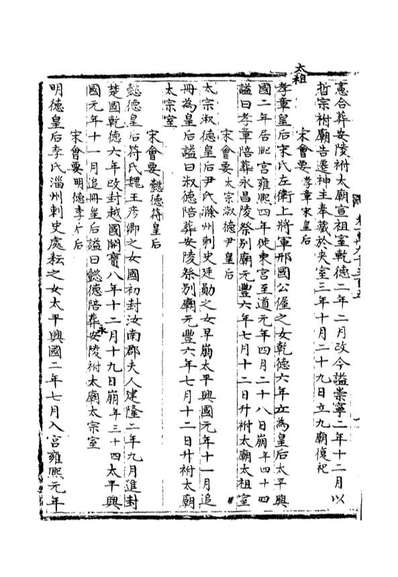 憲合葬安陵祔太廟宣祖室乾德二年二月改今謚崇寧二年十二月以
哲宗祔廟告遷神主奉藏於夾室三年十月二十九日立九廟復祀
宋會要 孝章宋皇后
太祖
孝章皇后宋氏左衛上將軍邢國公偓之女乾德六年立為皇后太平興
國二年居西宮雍熙四年徙東宮至道元年四月二十八日崩年四十四
謚曰孝章陪葬永昌陵祭別廟元豐六年七月十二日升祔太廟太祖室
宋會要 太宗淑德尹皇后
太宗淑德皇后尹氏滁州刺史廷勛之女早崩太平興國元年十一月追
冊為皇后謚曰淑德陪葬安陵祭別廟元豐六年七月十二日升祔太廟
太宗室
宋會要 懿德符皇后
懿德皇后符氏魏王彥卿之女國初封汝南郡夫人建隆二年九月進封
楚國乾德六年改封越國開寶八年十二月十九日崩年三十四太平興
國元年十一月追冊皇后謚曰懿德陪葬安陵祔太廟太宗室
永
宋會要 明德李皇后
明德皇后李氏淄州刺史處耘之女太平興國二年七月入宮雍熙元年